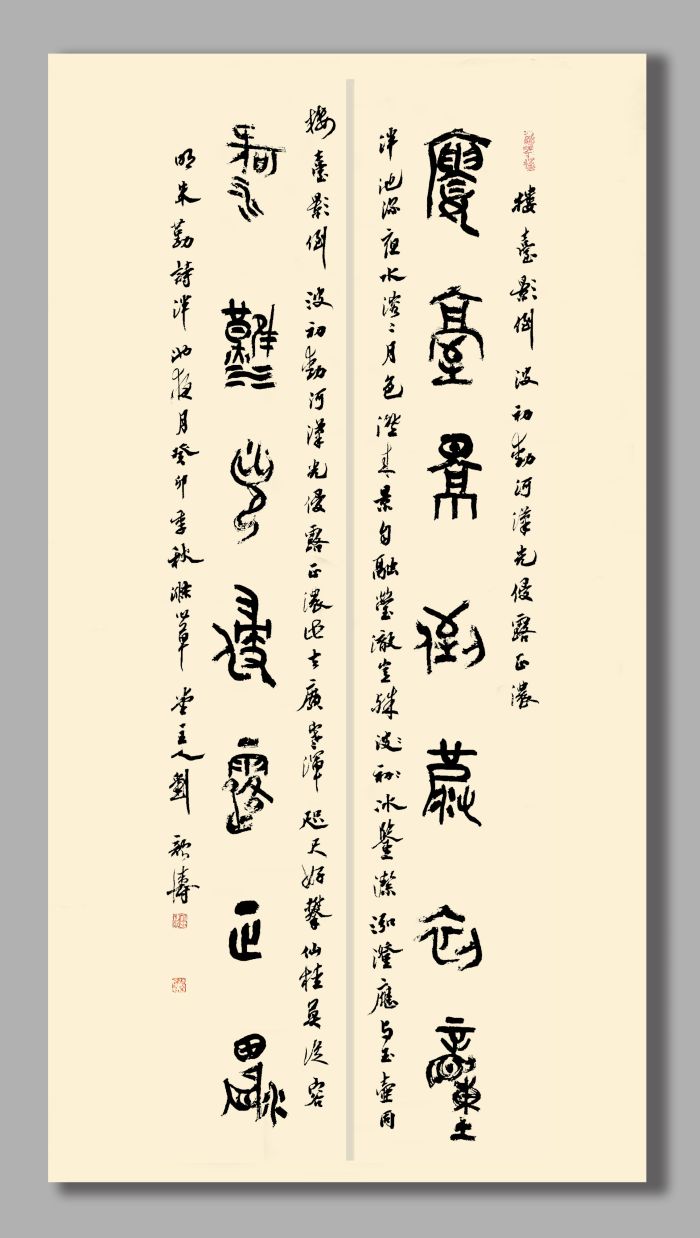 樓臺影倒波初動河漢光侵露正濃
樓臺影倒波初動
泮池深夜水溶〻月色澄来景自融瑩澈冰鑒潔泓澄應与玉壺同
樓臺影倒波初動河漢光侵露正濃此去廣寒渾咫尺好攀仙桂莫從容
河漢光侵露正濃
明朱勤詩泮池夜月癸卯季秋草堂主人劉